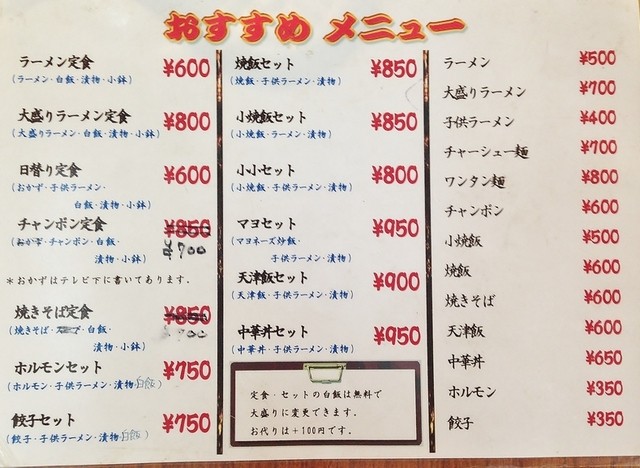 おすすめ メニュー
ラーメン定食 ¥600
(ラーメン・白飯・漬物・小鉢)
大盛りラーメン定食 ¥800
(大盛りラーメン・白飯・漬物・小鉢)
日替り定食 ¥600
(おかず・子供ラーメン・
白飯・漬物・小鉢)
チャンポン定食 ¥850
¥700
(おかず・チャンポン・白飯・
漬物・小鉢)
*おかずはテレビ下に書いてあります。
焼きそば定食 ¥850
(焼きそば・白飯・
漬物・小鉢)
ホルモンセット ¥750
(ホルモン・子供ラーメン・漬物白飯)
餃子セット ¥750
(餃子・子供ラーメン・漬物白飯)
焼飯セット ¥850
(焼飯・子供ラーメン・漬物)
小焼飯セット ¥850
(小焼飯・ラーメン・漬物)
小小セット ¥800
(小焼飯・子供ラーメン・漬物)
マヨセット ¥950
(マヨネーズ炒飯・
子供ラーメン・漬物)
天津飯セット ¥900
(天津飯・子供ラーメン・漬物)
中華丼セット ¥950
(中華丼・子供ラーメン・漬物)
定食・セットの白飯は無料で
大盛りに変更できます。
お代りは+100円です。
ラーメン ¥500
大盛りラーメン ¥700
子供ラーメン ¥400
チャーシュー麺 ¥700
ワンタン麺 ¥800
チャンポン ¥600
小焼飯 ¥500
焼飯 ¥600
焼きそば ¥600
天津飯 ¥600
中華丼 ¥650
ホルモン ¥350
餃子 ¥350